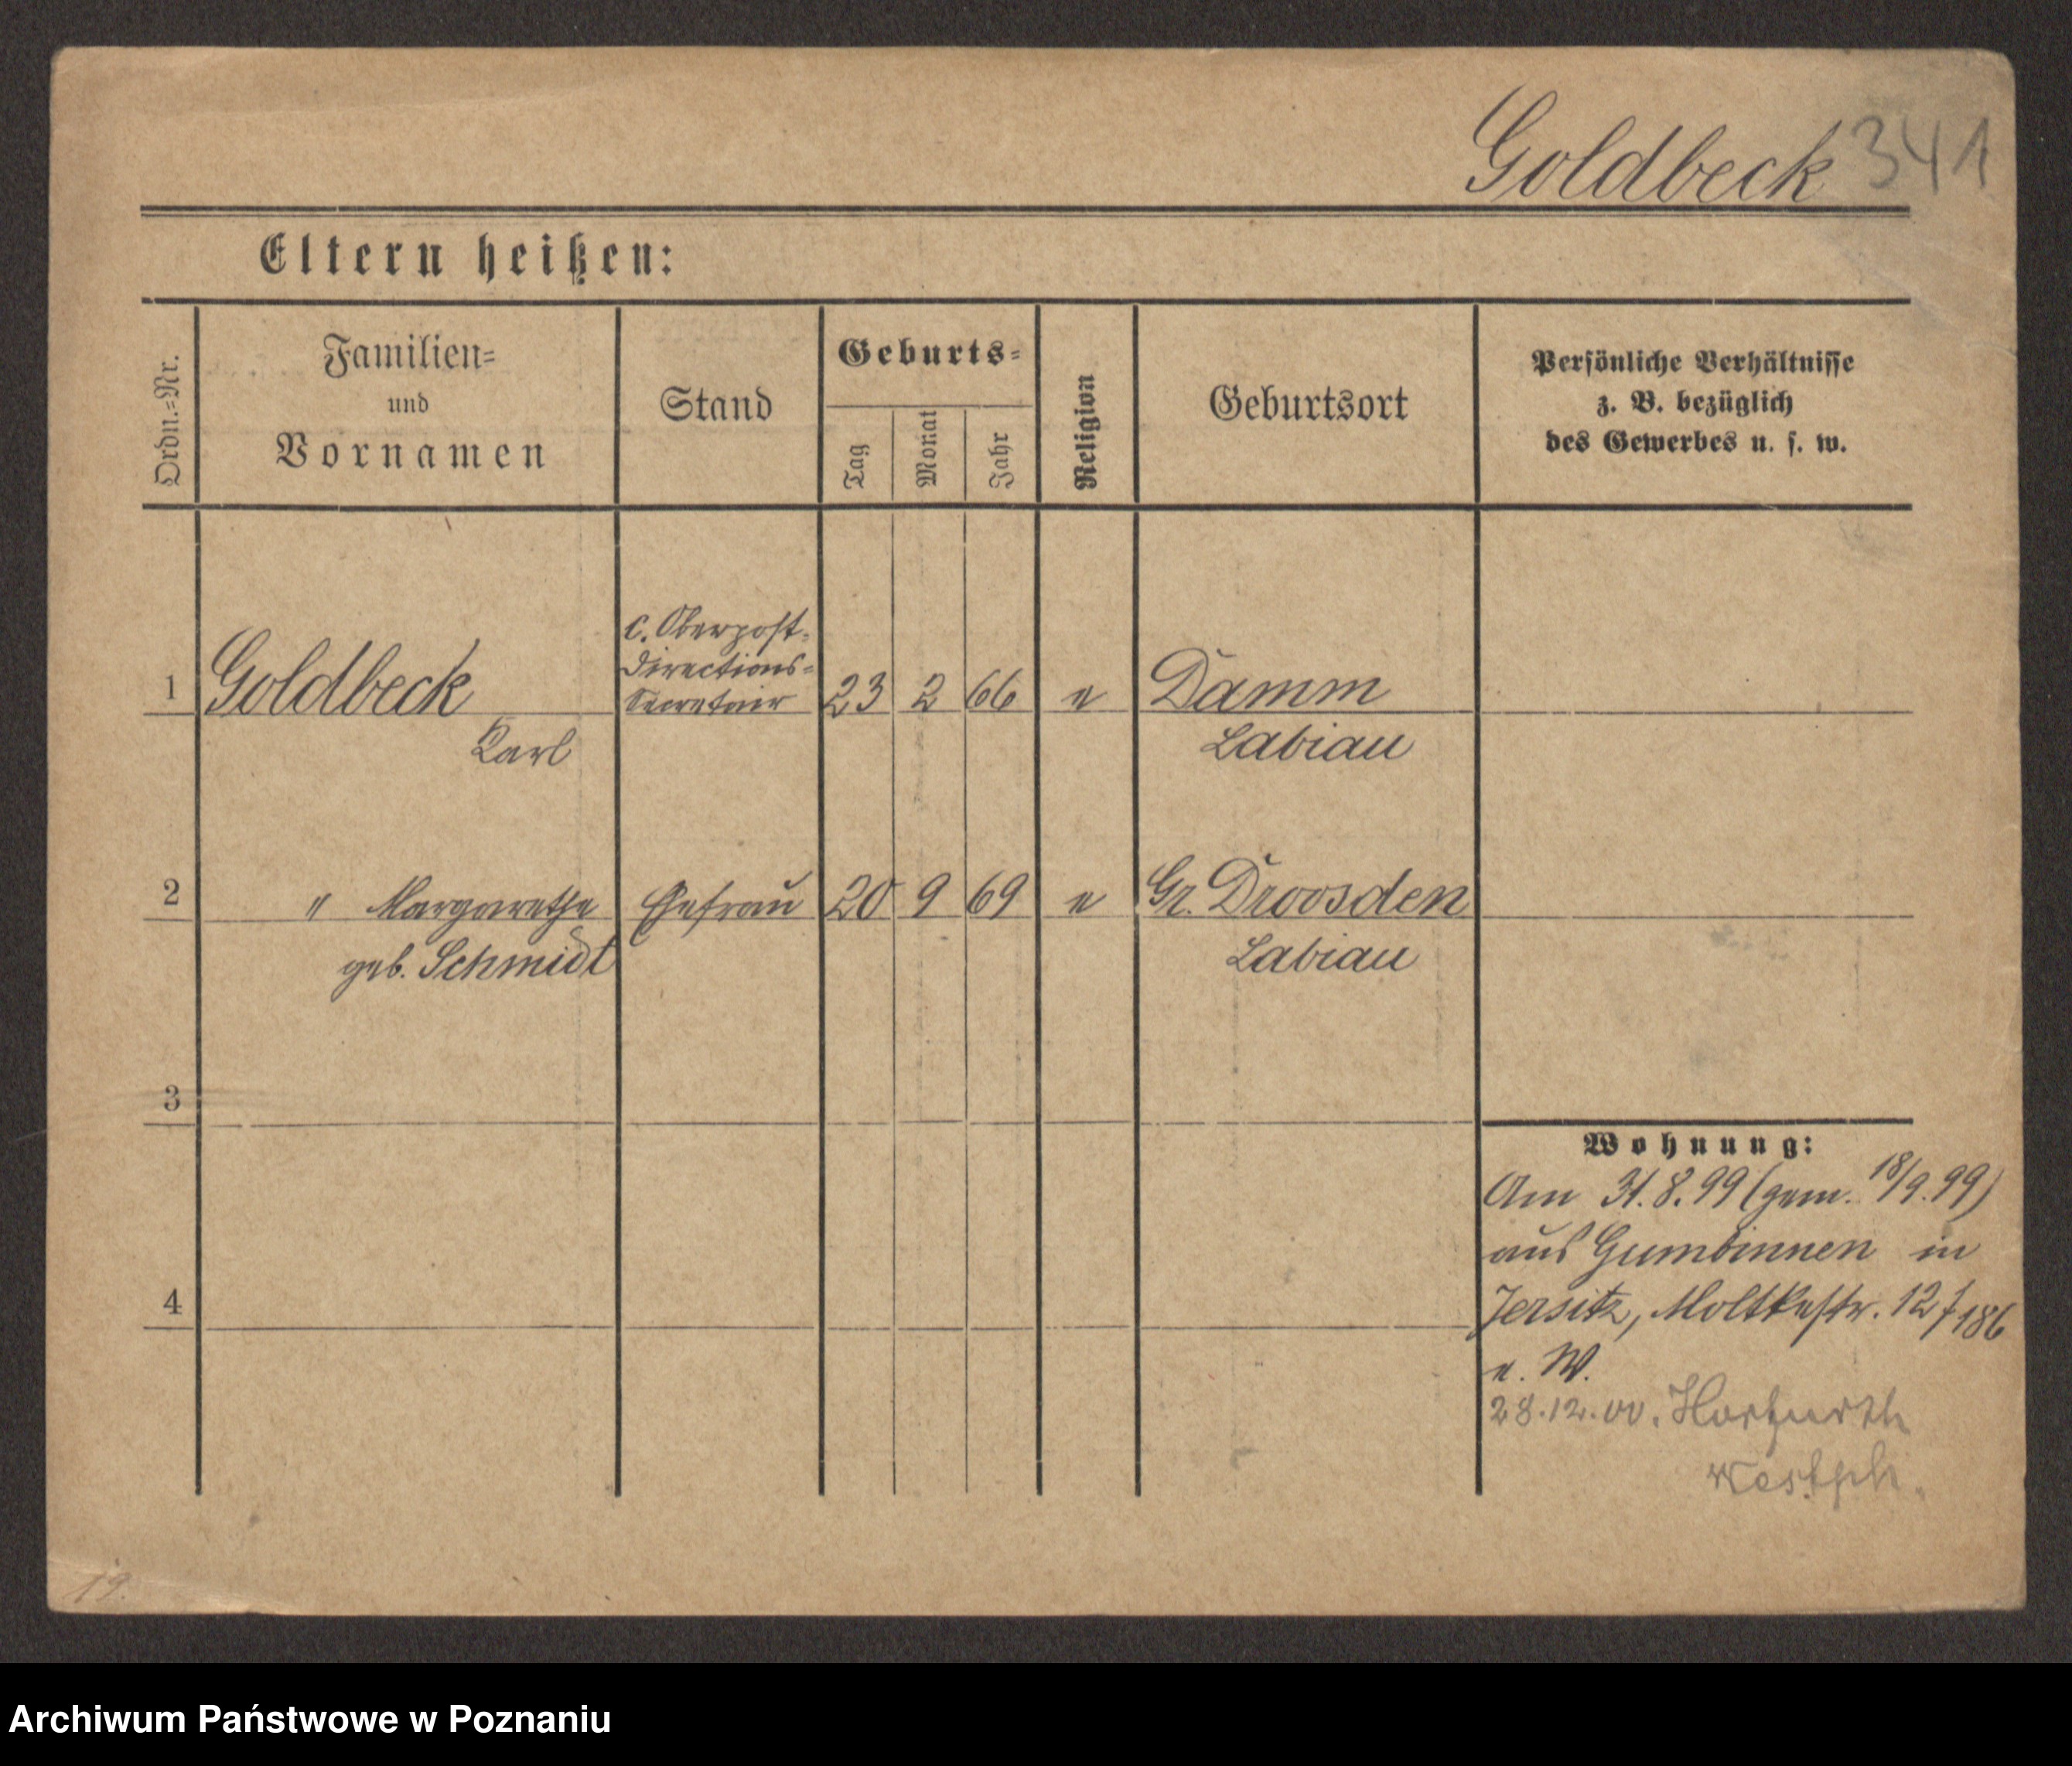 Goldbeck 341
Eltern heißen:
Ordn.=Nr.
Familien=
und
Vornamen
Stand
Geburts=
Tag
Monat
Jahr
Religion
Geburtsort
Persönliche Verhältnisse
z. B. bezüglich
des Gewerbes u. s. w.
c. Oberpost-
directions=
1 Goldbeck Secretair 23 2 66 e Damm
Karl Labiau
2 " Margarethe Ehefrau 20 9 69 e Gr. Droosden
geb. Schmidt Labiau
3
Wohnung:
Am 31.8.99 (gem. 18/9.99)
aus Gumbinnen in
4
Jersitz, Moltkestr. 12 186
e. W.
28.12.00.
Westph.
19.
Archiwum Państwowe w Poznaniu